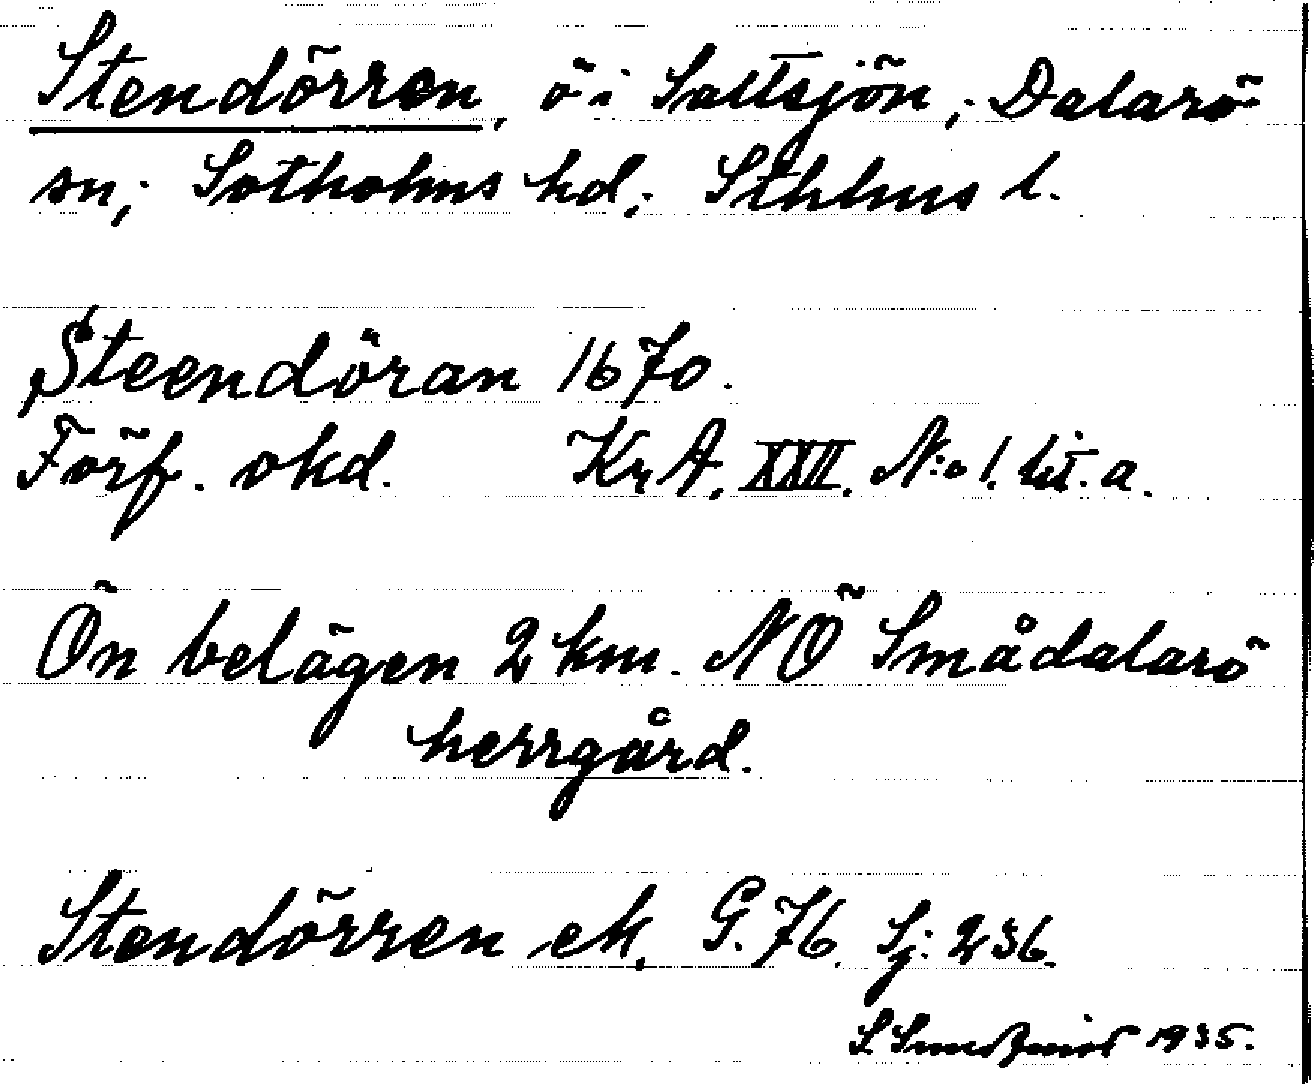 Stendörren, ö i Saltsjön, Dalarö
sn; Sotholms hd; Sthlms l.
Steendöran 1670.
Förf. okd. KrA. XXII. N:o 1. lit. a.
Ön belägen 2 km. NÖ Smådalarö
herrgård.
Stendörren ek. G. 76. Sj: 236.
S. 1935.